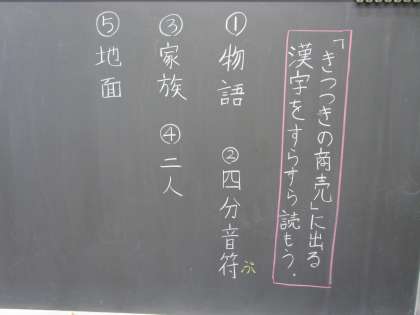 「きつつきの商売」に出る
漢字をすらすら読もう.
①物語 ②四分音符ぷ
③家族 ④二人
⑤地面